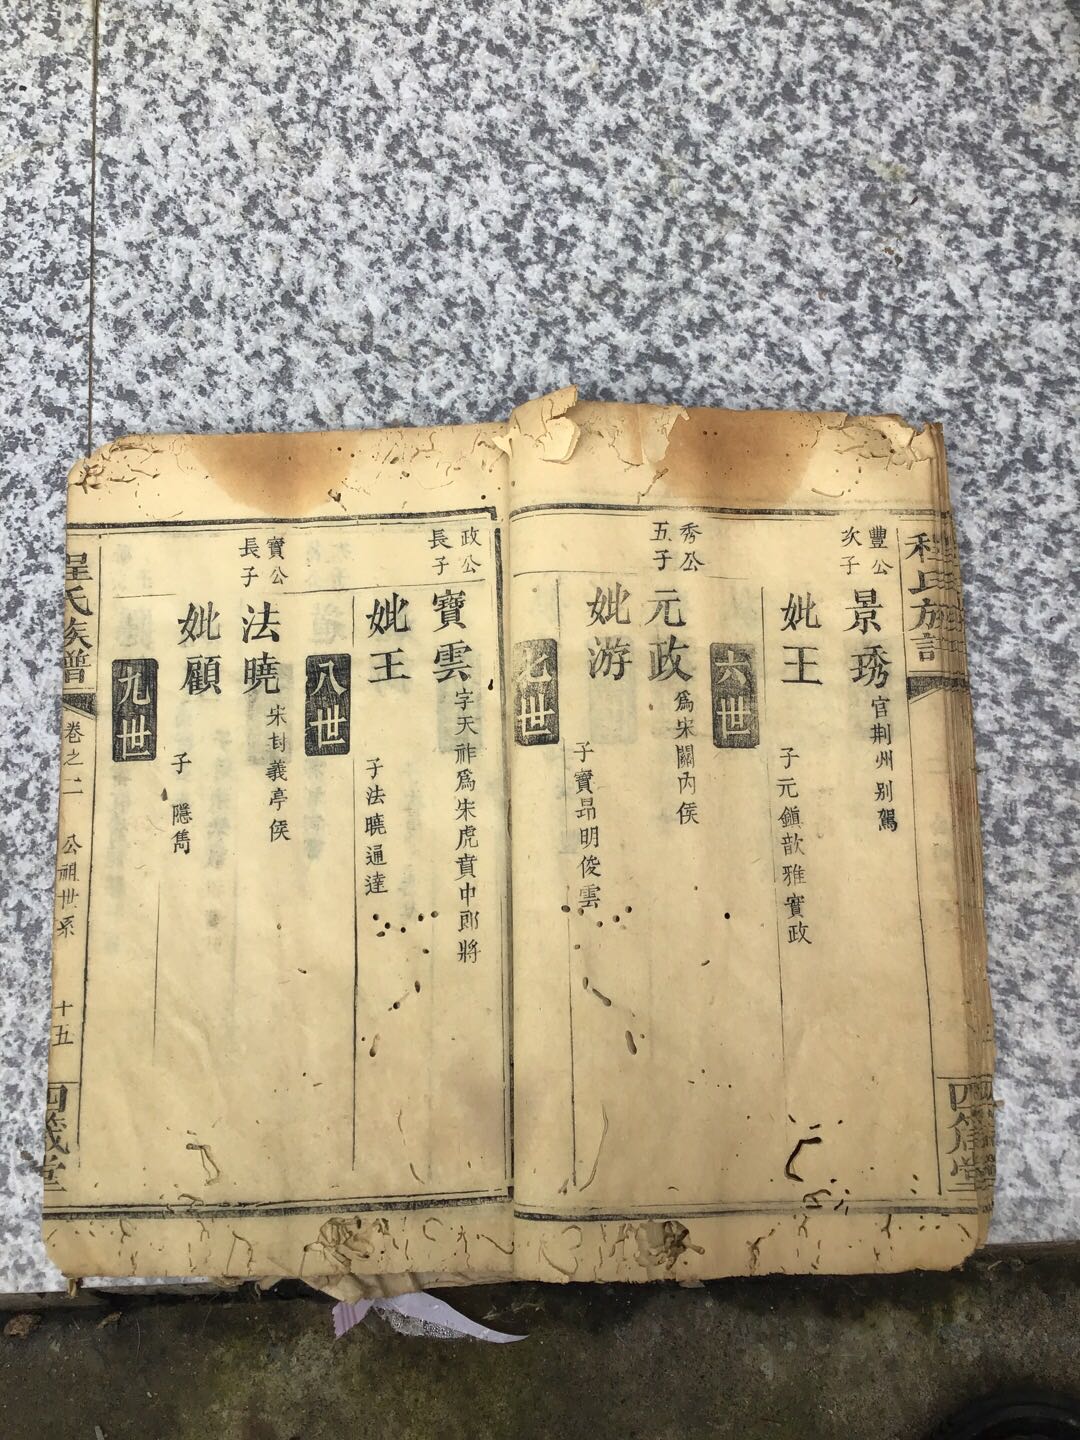 豐公
次子
景琇
官荆州别駕
妣王
子元鎮歆雅實政
六世
秀公
五子
元政
爲宋關内侯
妣游
子寶昂明俊雲
七世
政公
長子
寶雲
字天祚爲宋虎賁中郎將
妣王
子法曉通達
八世
寶公
長子
法曉
宋封義亭侯
妣顧
子隱雋
九世
程氏族譜
卷之二
公祖世系
十五
四箴堂